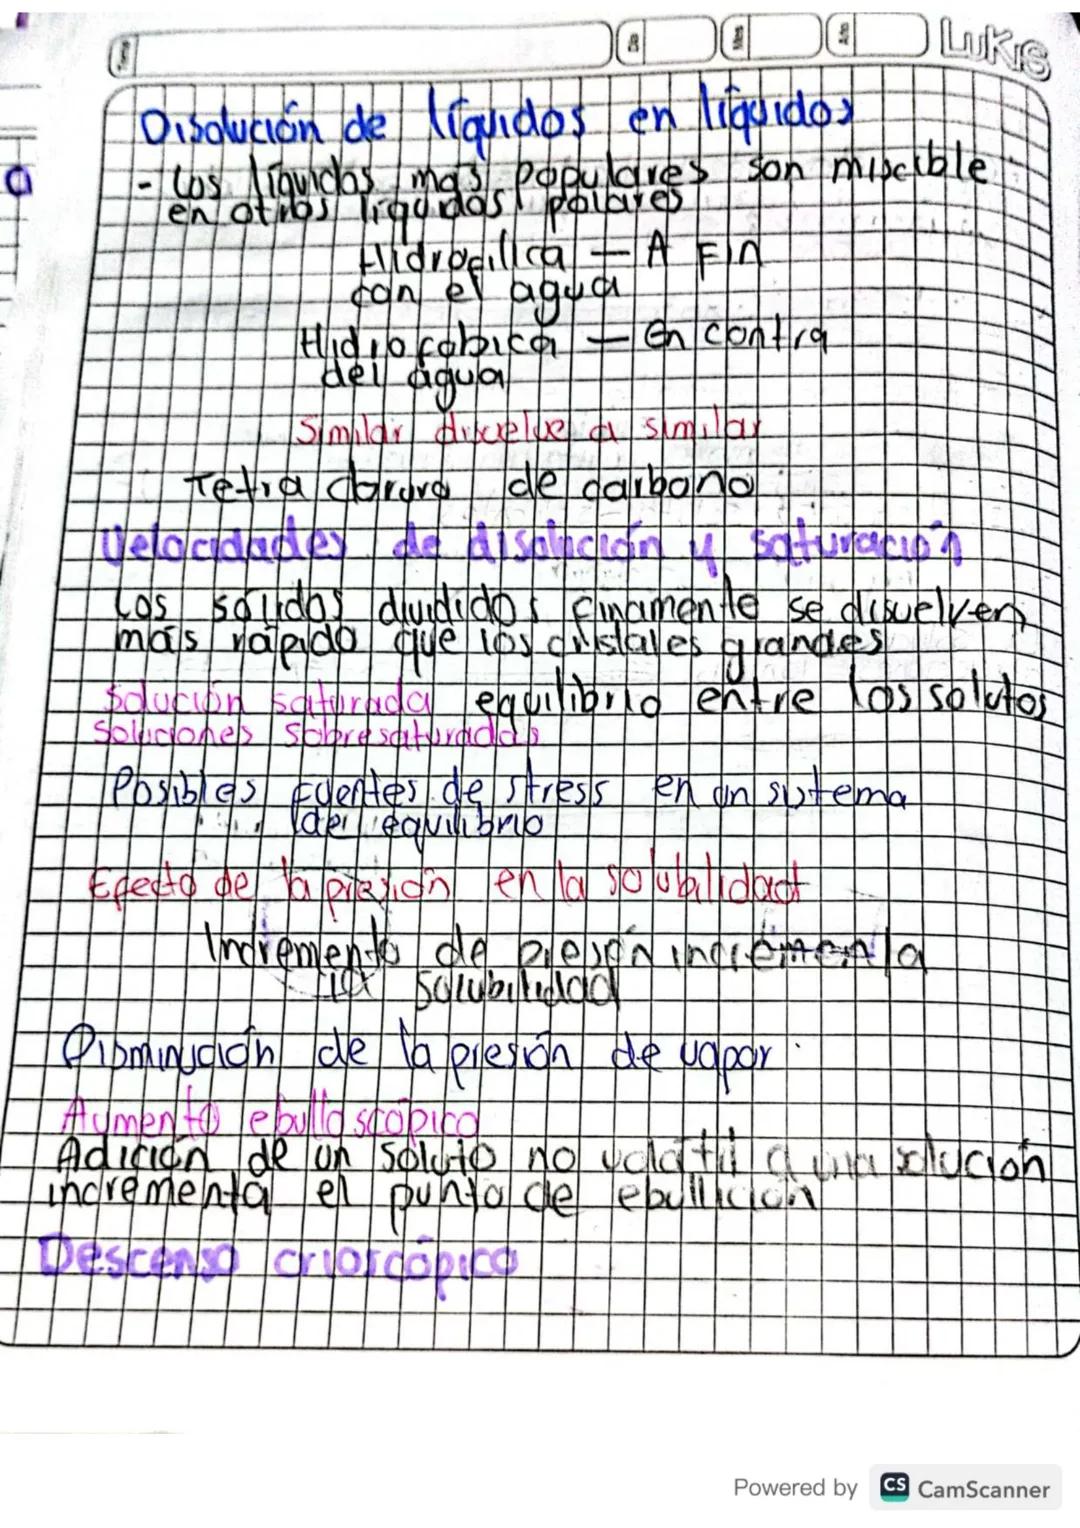 LUKIS
Disolución de líquidos en líquidos
- Los líquidos más populares son miscible
en otros líquidos polares
Hidrofílica — A FIN
con el agua
Hidrofóbica — En contra
del agua
Similar disuelve a similar
Tetra cloruro de carbono
Velocidades de disolución y saturación
Los sólidos divididos finamente se disuelven
más rápido que los cristales grandes
Solución saturada equilibrio entre los solutos
Soluciones sobresaturadas
Posibles fuentes de stress en un sistema
del equilibrio
Efecto de la presión en la solubilidad
Incremento de presión incrementa
la solubilidad
Disminución de la presión de vapor
Aumento ebulloscópico
Adición de un soluto no volátil a una solución
incrementa el punto de ebullición
Descenso crioscópico
Powered by CS CamScanner